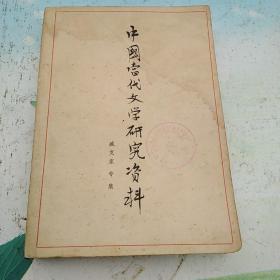 中國當代文学研究资料
臧克家专集